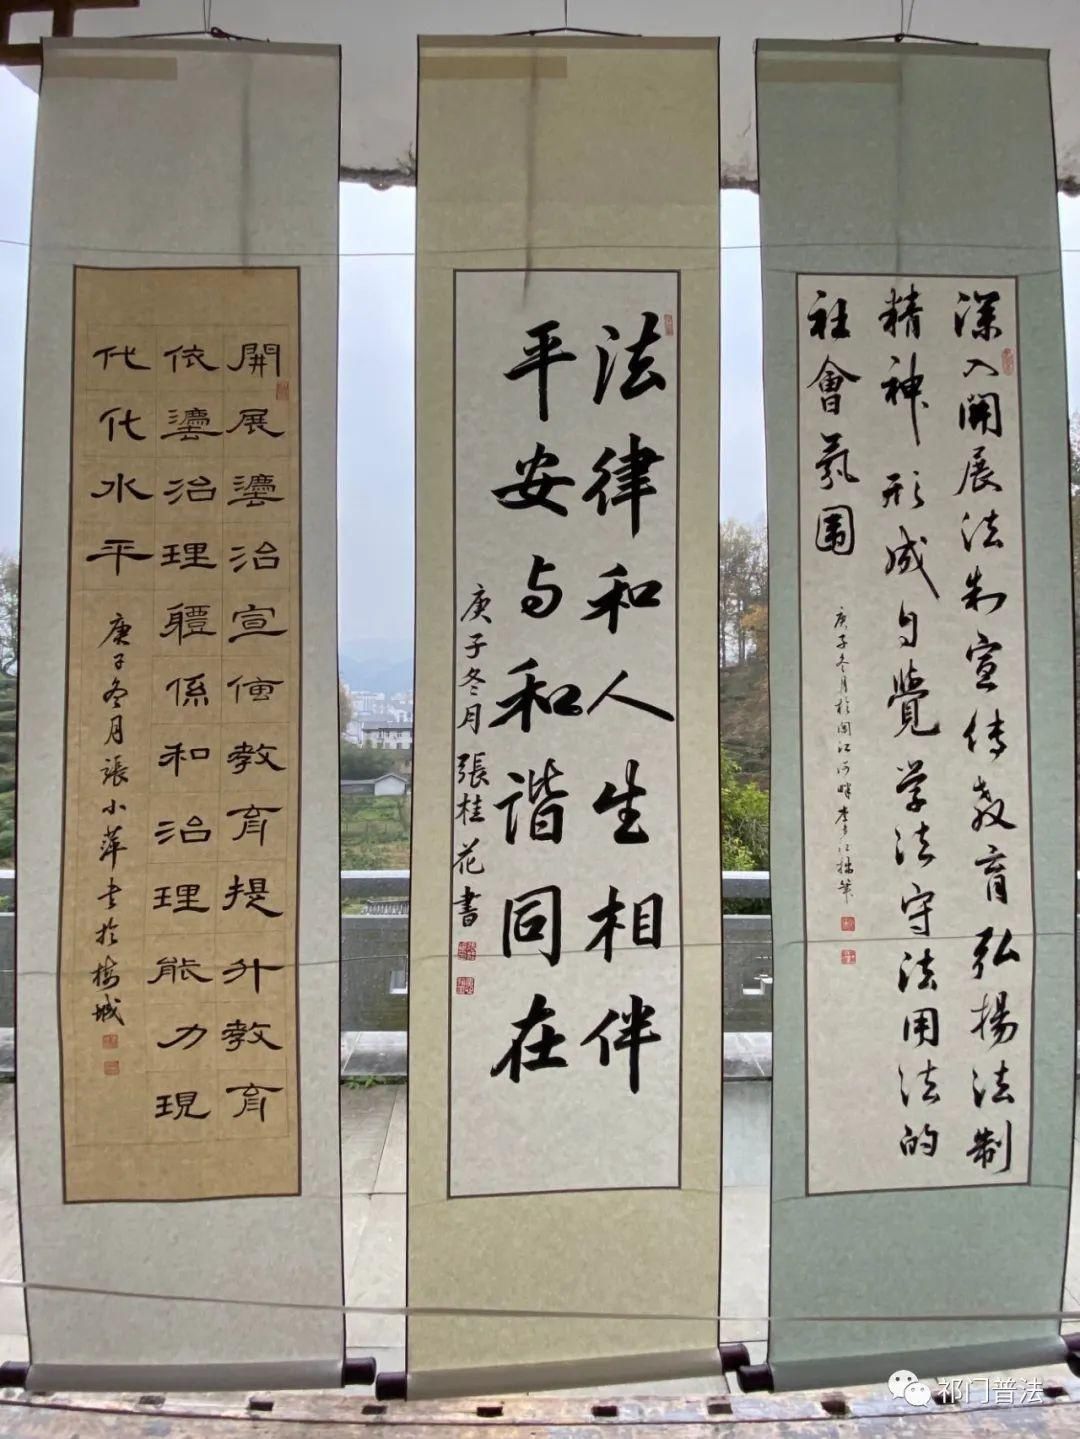 深入開展法制宣传教育弘揚法制
精神形成自覺学法守法用法的
社會氛围
庚子冬月於閶江河畔李江拙筆
法律和人生相伴
平安与和谐同在
庚子冬月張桂花書
開展灋治宣傳教育提升教育
依灋治理軆係和治理能力現
代化水平
庚子冬月張小萍书於梅城
祁门普法